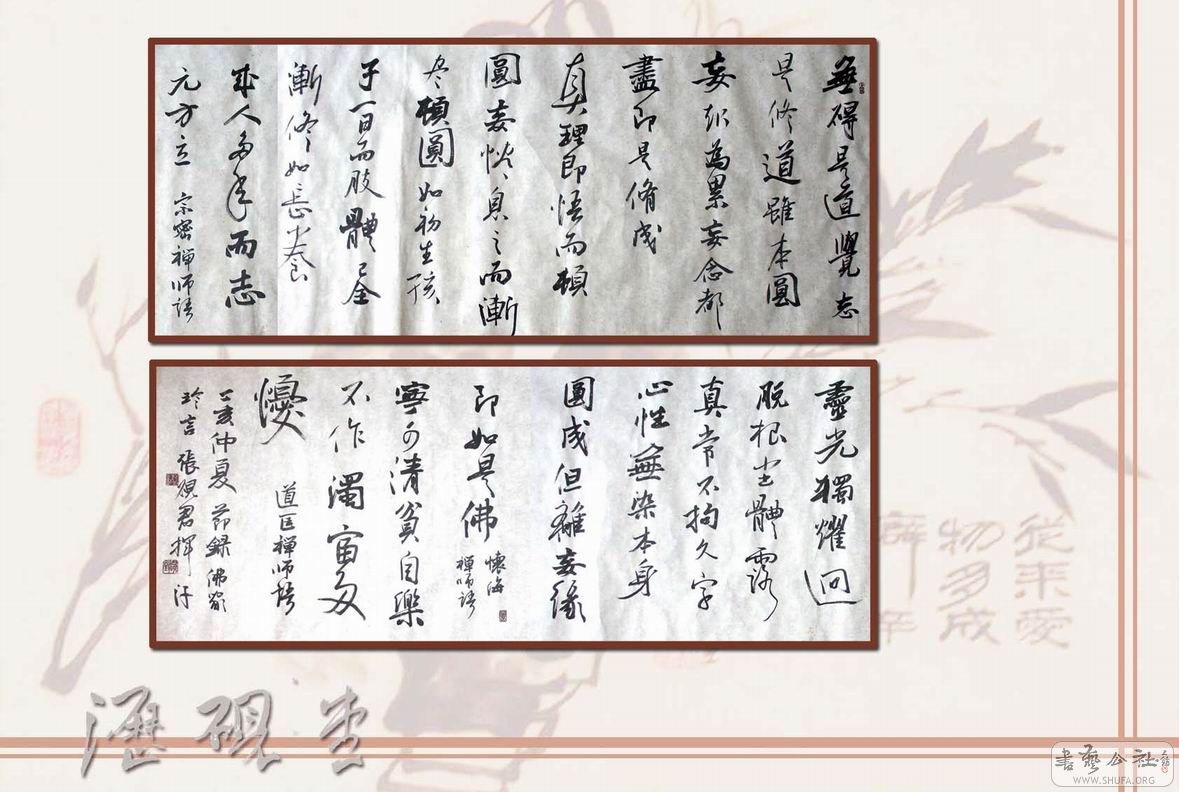 無碍是道覺忘
是修道雖本圓
妄起為累妄念都
盡即是脩成
真理即悟而頓
圓妄情息之而漸
尽頓圓如初生孩
子一日而肢體已全
漸修如長養
成人多年而志
元方立 宗密禅師語
靈光獨耀迥
脱根尘體露
真常不拘文字
心性無染本身
圓成但離妄緣
即如是佛 懷海
禪師語
寧可清貧自樂
不作濁富多
憂 道匡禅師語
丁亥仲夏節録佛家
珍言 張硯君揮汗
從来愛
物多成
硯堂
書藝公社
WWW.SHUFA.ORG